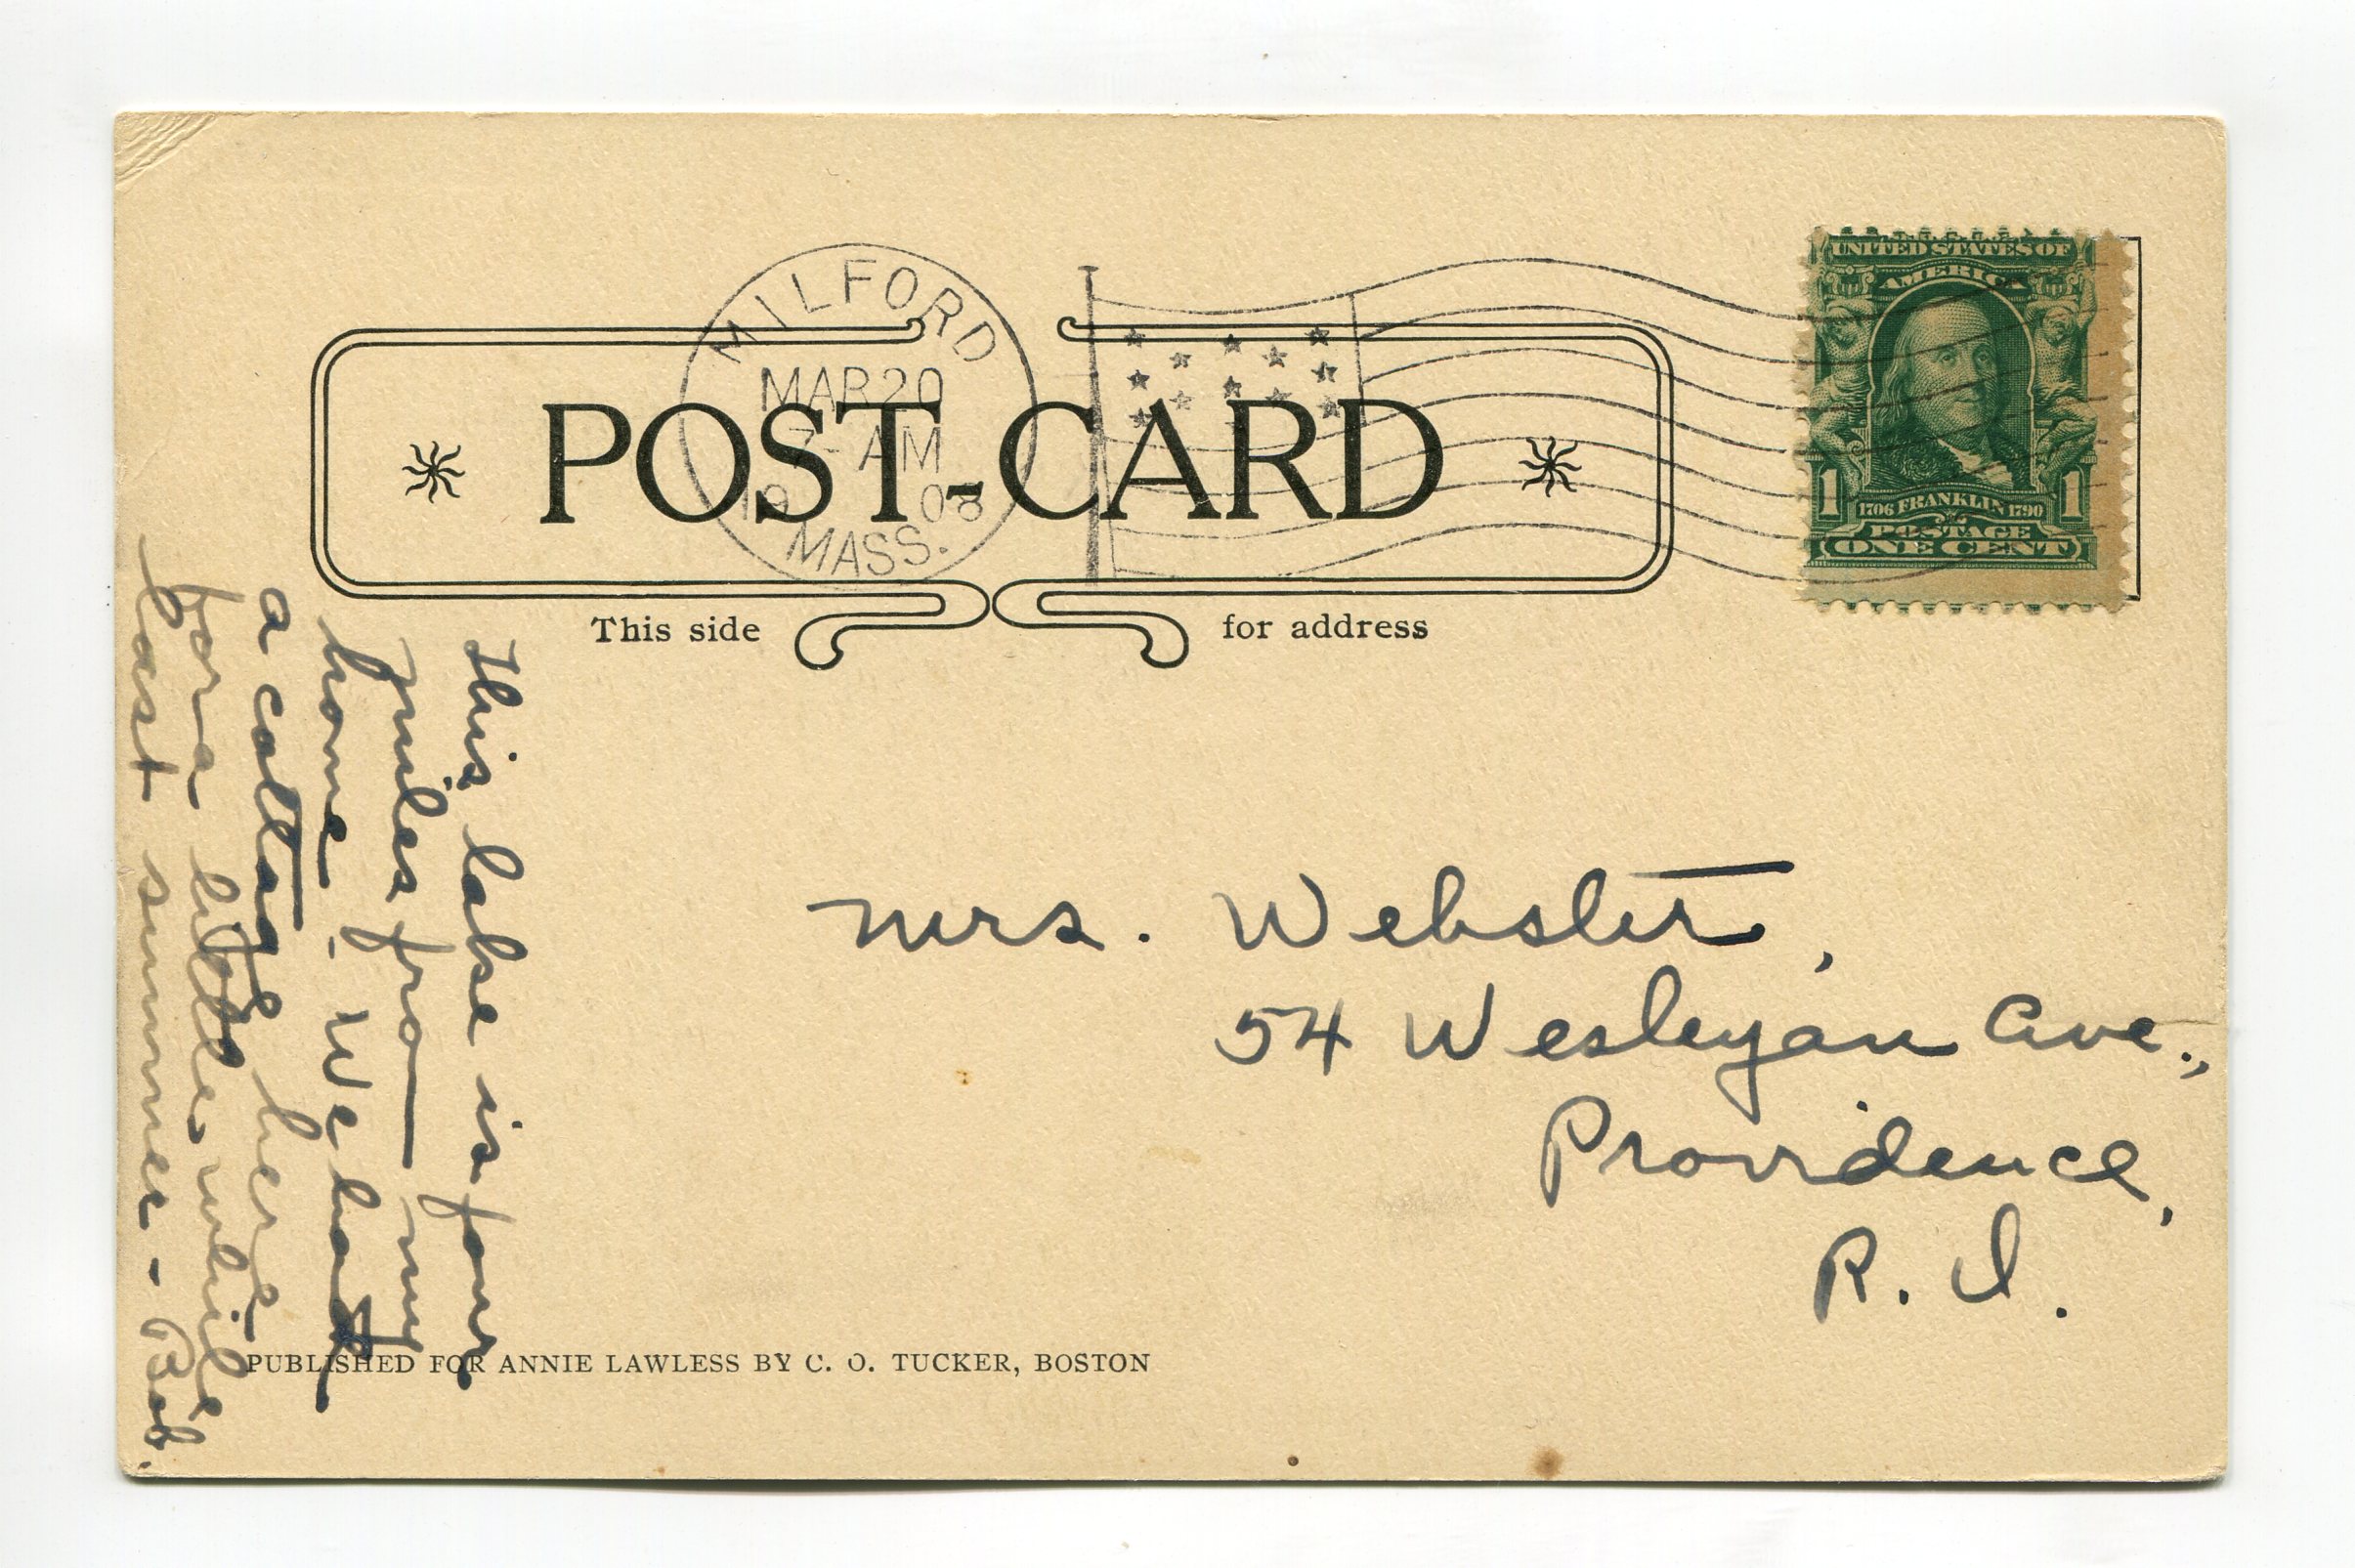 MILFORD
MAR 20
7- AM
19 08
MASS.
UNITED STATES OF
AMERICA
1 1706 FRANKLIN 1790 1
POSTAGE
ONE CENT
POST-CARD
This side for address
This lake is four
miles from my
home - We had
a cottage here
for a little while
last summer - Bob.
Mrs. Webster,
54 Wesleyan Ave.,
Providence,
R. I.
PUBLISHED FOR ANNIE LAWLESS BY C. O. TUCKER, BOSTON